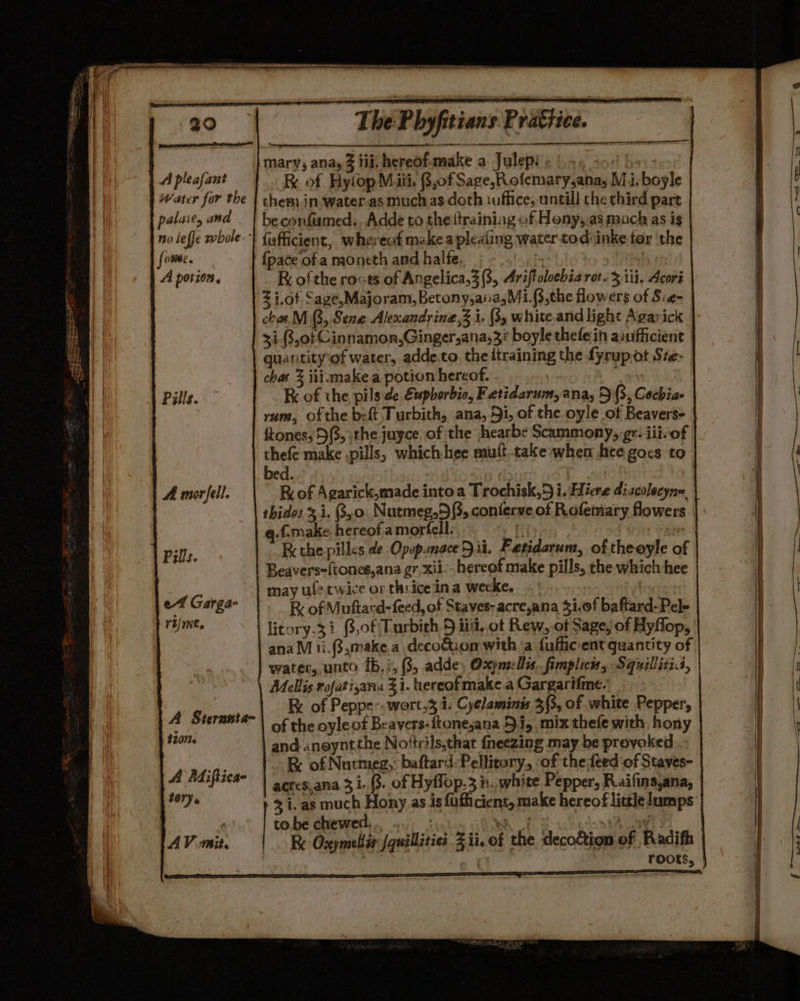 20
The Phyſitians Practice.
mary, ana, ℥ iii. hereof make a Julep:
A pleaſant
℞ of Hyſop M iiii. ß, of Sage, Roſemary, ana, M i. boyle
Water for the
them in water as much as doth ſuffice, untill the third part
palsie, and
be conſumed. Adde to the ſtraining of Hony, as much as is
no leſſe whole-
ſufficient, whereof make a pleaſing water to drinke for the
ſome.
ſpace of a moneth and halfe.
A potion.
℞ of the roots of Angelica, ℥ ß, Ariſtolochia rot. ʒ iii. Acori
℥ i. of Sage, Majoram, Betony, ana, M i. ß, the flowers of Stæ-
chas M ß, Sene Alexandrine, ℥ i. ß, white and light Agarick
ʒ i ß, of Cinnamon, Ginger, ana, ʒ i boyle theſe in a ſufficient
quantity of water, adde to the ſtraining the ſyrup of Stæ-
chas ℥ iii. make a potion hereof.
Pills.
℞ of the pils de Euphorbio, Fetidarum, ana, ℈ ß, Cochia-
rum, of the beſt Turbith, ana, ℈i, of the oyle of Beavers-
ſtones, ℈ß, the juyce of the hearbe Scammony, gr. iii. of
theſe make pills, which hee muſt take when hee goes to
bed.
A morſell.
℞ of Agarick, made into a Trochisk, ℈ i. Hiere diacolocyn-
thidos ʒ i. ß, o. Nutmeg, ℈ ß, conſerve of Roſemary flowers
q. ſ. make hereof a morſell.
Pills.
℞ the pilles de Opopanace ℈ ii. Fetidarum, of the oyle of
Beavers-ſtones, ana gr. xii. hereof make pills, the which hee
may uſe twice or thrice in a weeke.
A Garga-
℞ of Muſtard-ſeed, of Staves-acre, ana ʒi. of baſtard-Pel-
riſme.
litory. ʒ i ß, of Turbith ℈ iiii, of Rew, of Sage, of Hyſſop,
ana M ii. ß, make a decoction with a ſufficient quantity of
water, unto ℔. i, ß, adde, Oxymellis ſimplicis, Squillitici,
Mellis roſati, ana ℥ i. hereof make a Gargariſme.
℞ of Pepper-wort, ʒ i. Cyclaminis ʒ ß, of white Pepper,
A Sternuta-
of the oyle of Beavers-ſtones, ana ℈ i, mix theſe with hony
tion.
and anoynt the Noſtrils, that ſneezing may be provoked.
℞ of Nutmeg, baſtard Pellitory, of the ſeed of Staves-
A Maſtica-
acres, ana ʒ i. ß. of Hyſſop. ʒ ii. white Pepper, Raiſins, ana,
tory.
ʒ i. as much Hony as is ſufficient, make hereof little lumps
to be chewed.
A Vomit.
℞ Oxymellis ſquillitici ℥ ii. of the decoction of Radiſh
roots,